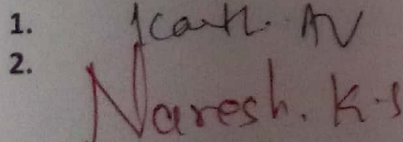 1. AV
2. Naresh. K.S